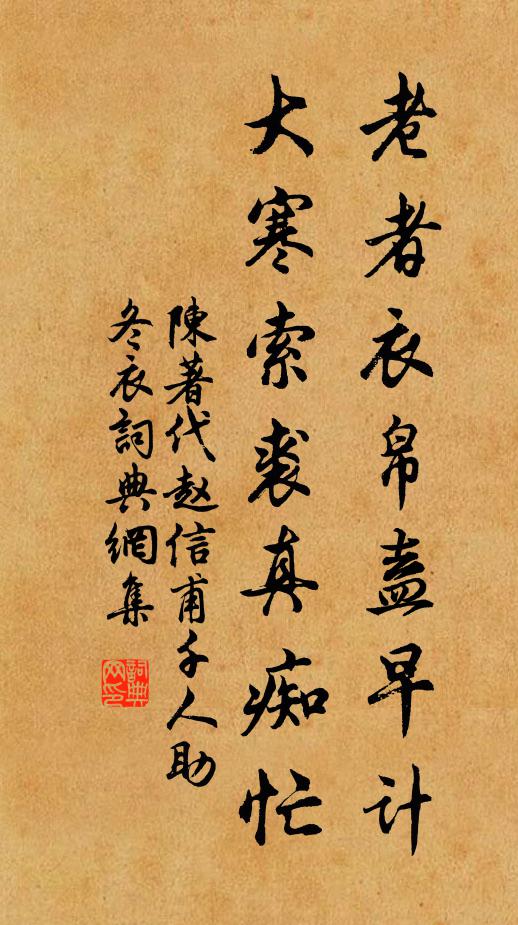 老者衣帛盍早计
大寒索裘真痴忙
陳著代赵信甫千人助
冬衣詞典網集
詞典网印